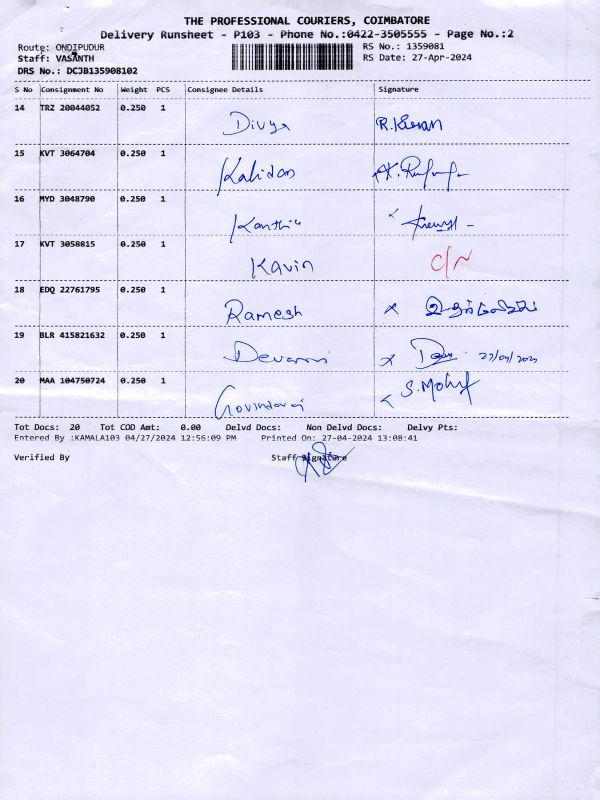 THE PROFESSIONAL COURIERS, COIMBATORE
Delivery Runsheet - P103 - Phone No.:0422-3505555 - Page No.:2
Route: ONDIPUDUR RS No.: 1359081
Staff: VASANTH RS Date: 27-Apr-2024
DRS No.: DCJB135908102
S No Consignment No Weight PCS Consignee Details Signature
14 TRZ 20044052 0.250 1 Divya R.Kiran
15 KVT 3064704 0.250 1 Kalidas
16 MYD 3048790 0.250 1
17 KVT 3058815 0.250 1 Kavin C/N
18 EDQ 22761795 0.250 1 Ramesh
19 BLR 415821632 0.250 1
20 MAA 104750724 0.250 1 Govindaraj
Tot Docs: 20 Tot COD Amt: 0.00 Delvd Docs: Non Delvd Docs: Delvy Pts:
Entered By :KAMALA103 04/27/2024 12:56:09 PM Printed On: 27-04-2024 13:08:41
Verified By Staff Signature